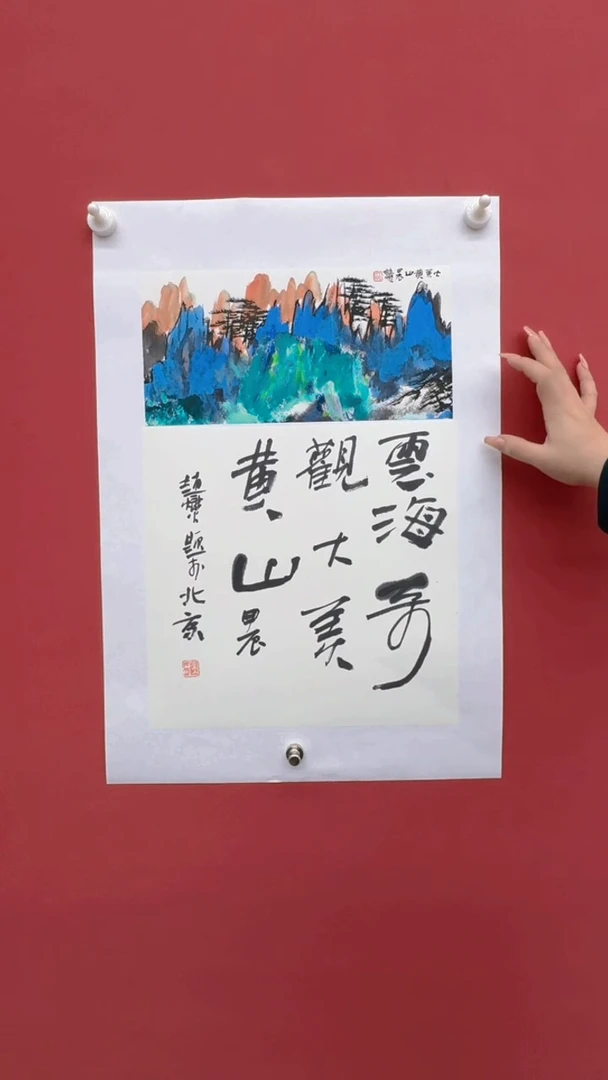 大美黄山晨
雲海奇
觀大美
黄山晨
趙 題於北京